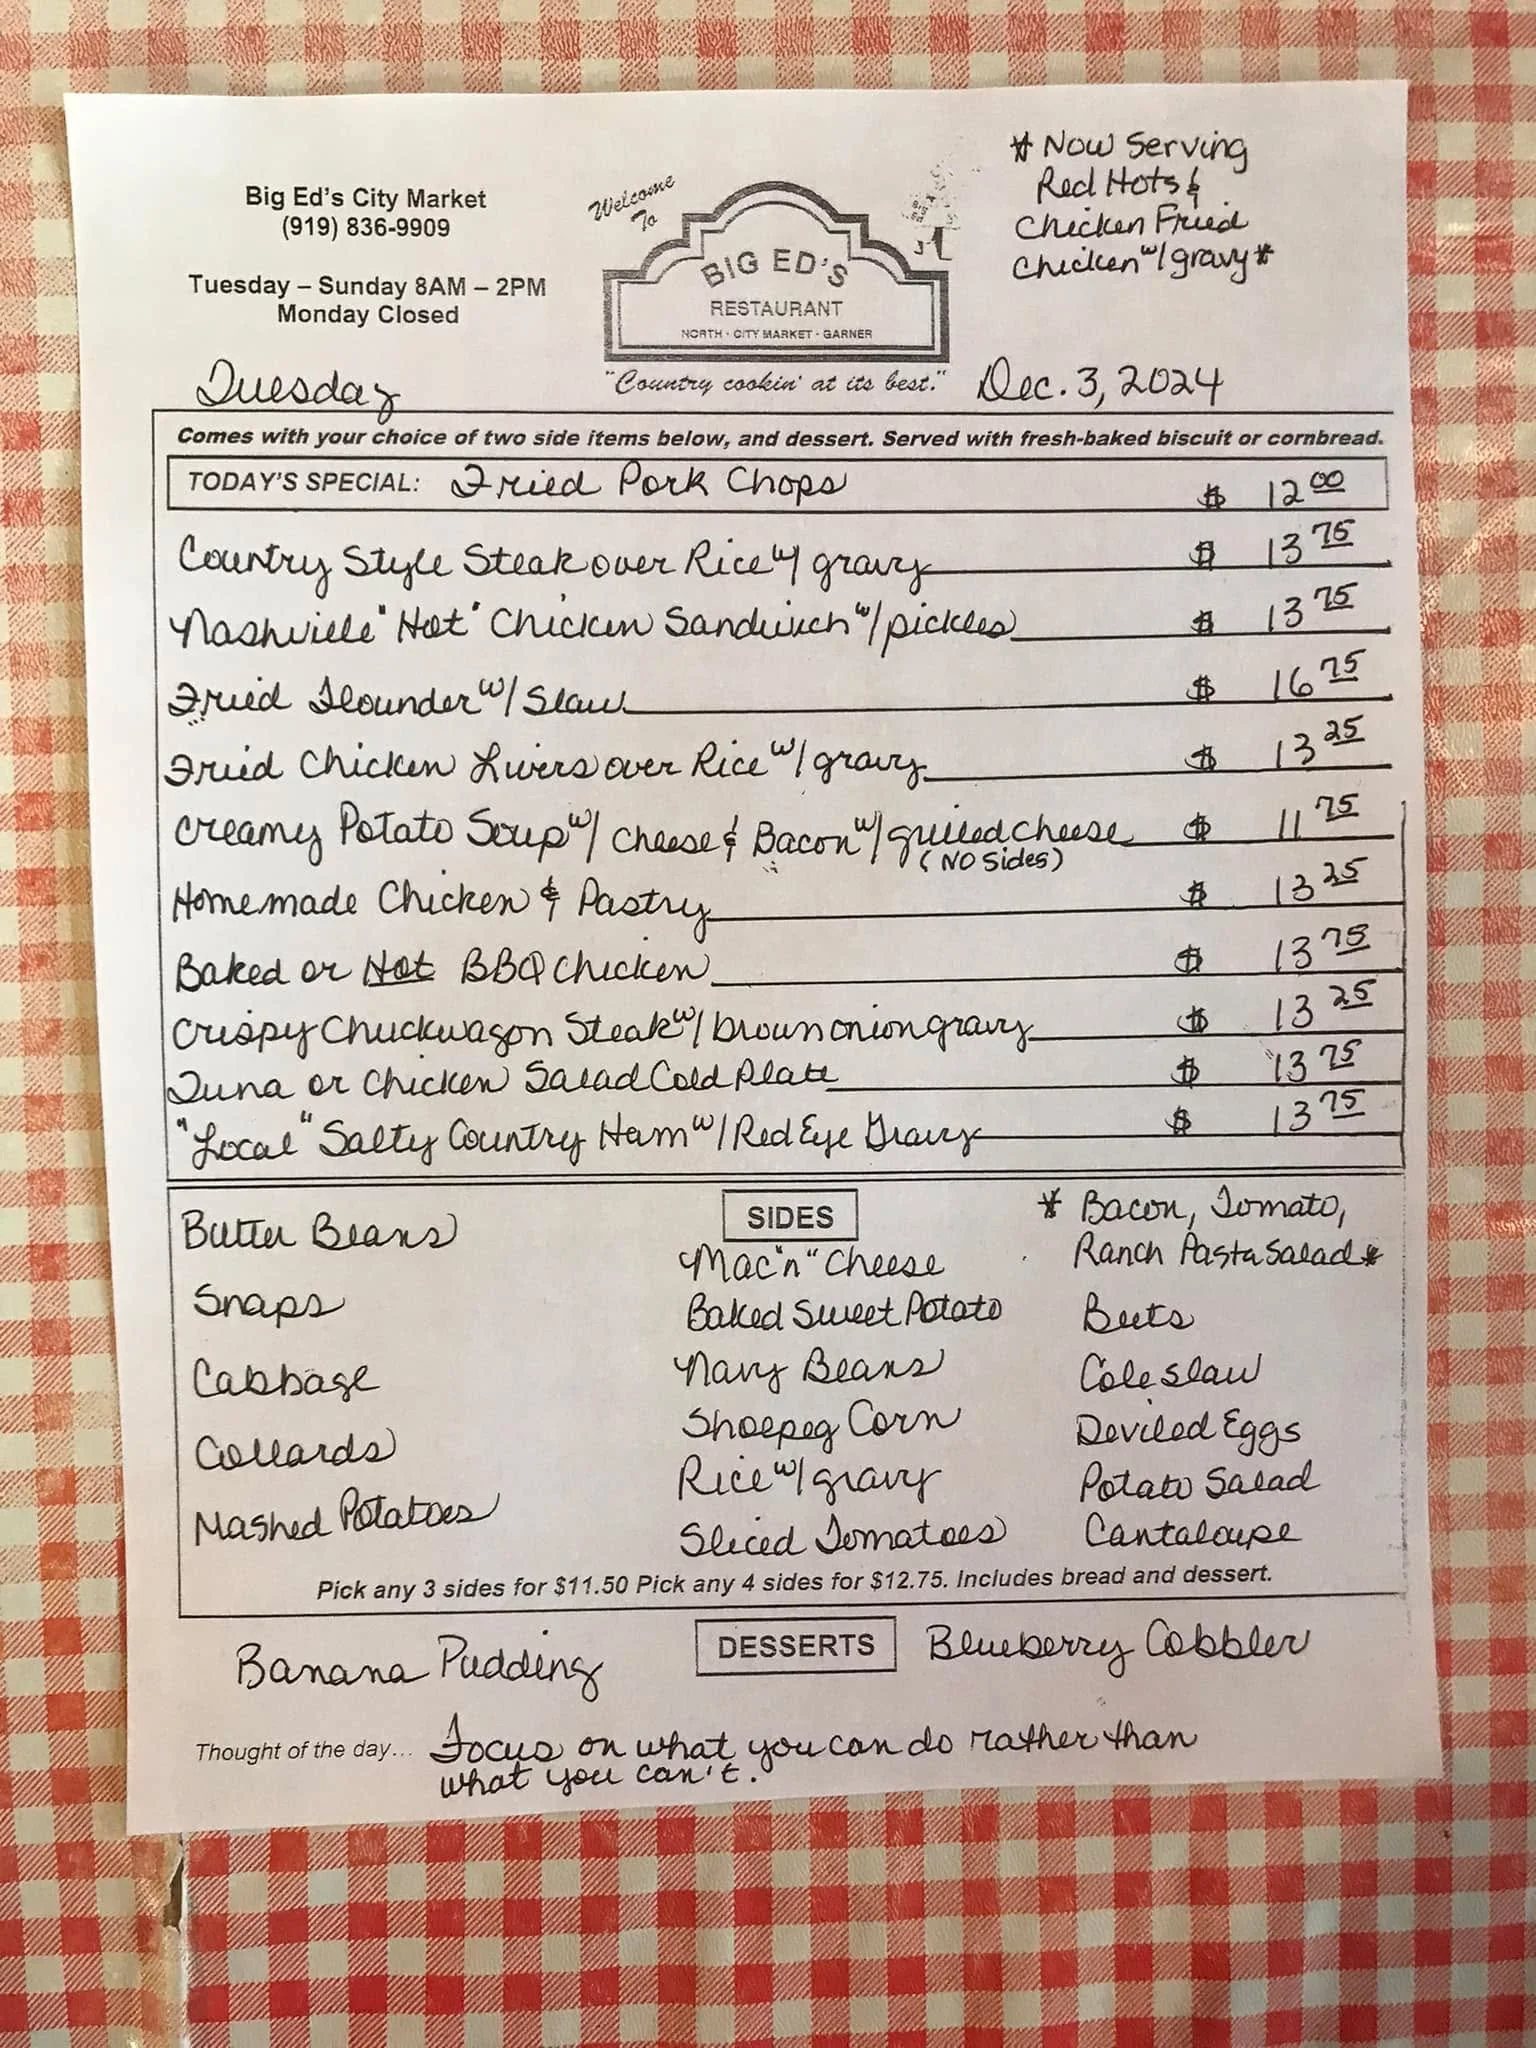 Big Ed's City Market
(919) 836-9909
Tuesday – Sunday 8AM – 2PM
Monday Closed
Welcome
To
BIG ED'S
RESTAURANT
NORTH · CITY MARKET · GARNER
"Country cookin' at its best."
* Now Serving
Red Hots &
Chicken Fried
Chicken w/ gravy *
Tuesday
Dec. 3, 2024
Comes with your choice of two side items below, and dessert. Served with fresh-baked biscuit or cornbread.
TODAY'S SPECIAL: Fried Pork Chops $ 12 00
Country Style Steak over Rice w/ gravy $ 13 75
Nashville "Hot" Chicken Sandwich w/ pickles $ 13 75
Fried Flounder w/ Slaw $ 16 75
Fried Chicken Livers over Rice w/ gravy $ 13 25
Creamy Potato Soup w/ Cheese & Bacon w/ grilled cheese $ 11 75
(NO Sides)
Homemade Chicken & Pastry $ 13 25
Baked or Hot BBQ Chicken $ 13 75
Crispy Chuckwagon Steak w/ brown onion gravy $ 13 25
Tuna or Chicken Salad Cold Plate $ 13 75
"Local" Salty Country Ham w/ Red Eye Gravy $ 13 75
SIDES
Butter Beans
Snaps
Cabbage
Collards
Mashed Potatoes
Mac "n" Cheese
Baked Sweet Potato
Navy Beans
Shoepeg Corn
Rice w/ gravy
Sliced Tomatoes
* Bacon, Tomato,
Ranch Pasta Salad *
Beets
Cole slaw
Deviled Eggs
Potato Salad
Cantaloupe
Pick any 3 sides for $11.50 Pick any 4 sides for $12.75. Includes bread and dessert.
DESSERTS
Banana Pudding
Blueberry Cobbler
Thought of the day... Focus on what you can do rather than
what you can't.